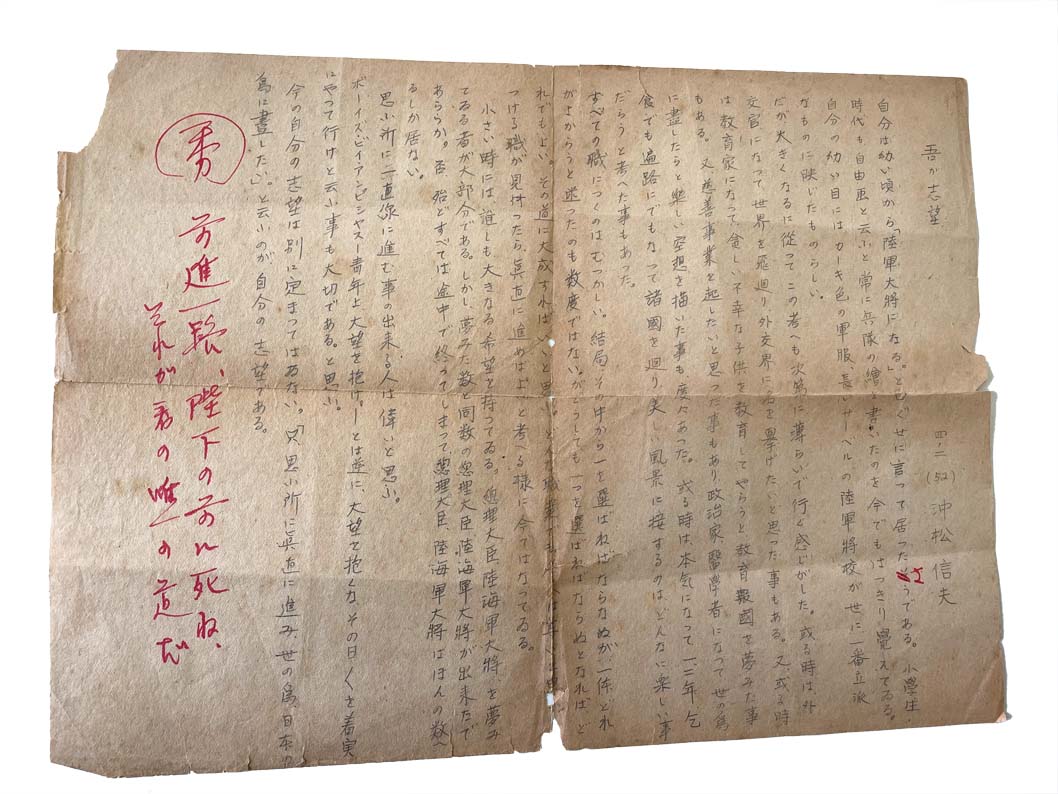 吾が志望
四ノ二(52) 沖松信夫
自分は幼い頃から「陸軍大將になる。」と口ぐせに言つて居つたさうである。小學生
時代も自由画と云ふと常に兵隊の繪を書いたのを今でもはつきり覺えてゐる。
自分の幼い目にはカーキ色の軍服、長いサーベルの陸軍將校が世に一番立派
なものに映じたものらしい。
だが大きくなるに從つてこの考へも次第に薄らいで行く感じがした。或る時は外
交官になつて世界を飛廻り外交界に名を擧げたいと思つた事もある。又、或る時
は教育家になつて貧しい不幸な子供を教育してやらうと教育報國を夢みた事
もある。又慈善事業を起したいと思つた事もあり政治家、醫學者になつて世の爲
に盡したらと樂しい空想を描いた事も度々あつた。或る時は本気になつて一二年乞
食でも遍路にでもなつて諸國を廻り、美しい風景に接するのはどんなに楽しい事
だらうと考へた事もあつた。
すべての職につくのはむつかしい。結局、その中から一を選ばねばならなぬが、一体どれ
がよからうと迷つたのも数度ではない。がどうしても一つを選ばねばならぬとなればど
れでもよい。その道に大成すればいいと思
つける職が見付つたら、眞直に進めばよいと考へる様に今ではなつてゐる。
小さい時には、誰しも大きなる希望を持つてゐる。總理大臣、陸海軍大將、を夢み
てゐる者が大部分である。しかし、夢みた数と同数の總理大臣、陸海軍大將が出来たで
あらうか。否、殆どすべては途中で終つてしまつて、總理大臣、陸海軍大將はほんの数へ
るしか居ない。
思ふ所に一直線に進む事の出来る人は偉いと思ふ。
ボーイズ・ビイアンビシヤス―青年よ大望を抱け。―とは逆に、大望を抱くな、その日〱を着実
にやつて行けと云ふ事も大切である。と思ふ。
今の自分の志望は別に定まつてはゐない。「只、思ふ所に眞直に進み、世の爲、日本の
爲に盡したい」。と云ふのが自分の志望である。
前進一路、陛下の前に死ね、
それが君の唯一の道だ